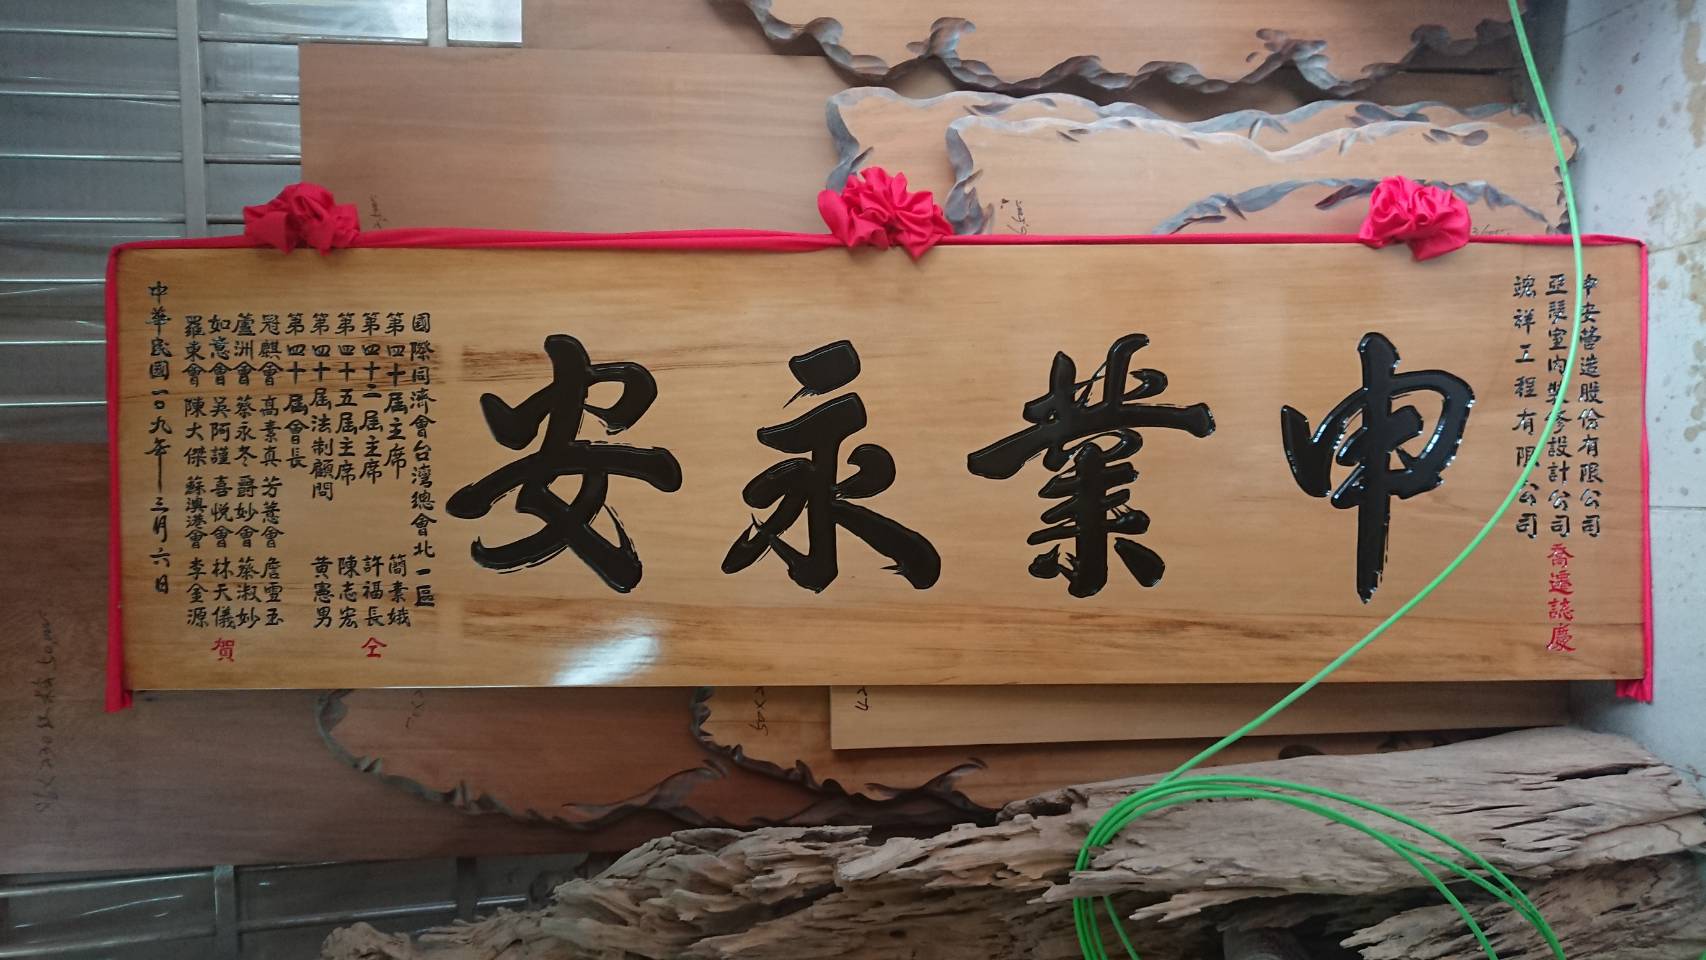 申安營造股份有限公司
亞瑟室內裝修設計公司 喬遷誌慶
竣祥工程有限公司
申業永安
國際同濟會台灣總會北一區
第四十屆主席 簡素娥
第四十二屆主席 許福長 仝
第四十五屆主席 陳志宏
第四十屆法制顧問 黃憲男
第四十屆會長
冠麒會 高素真 芳薏會 詹雪玉
蘆洲會 蔡永冬 爵妙會 蔡淑妙
如意會 吳阿謹 喜悅會 林天儀 賀
羅東會 陳大傑 蘇澳港會 李金源
中華民國一0九年三月六日